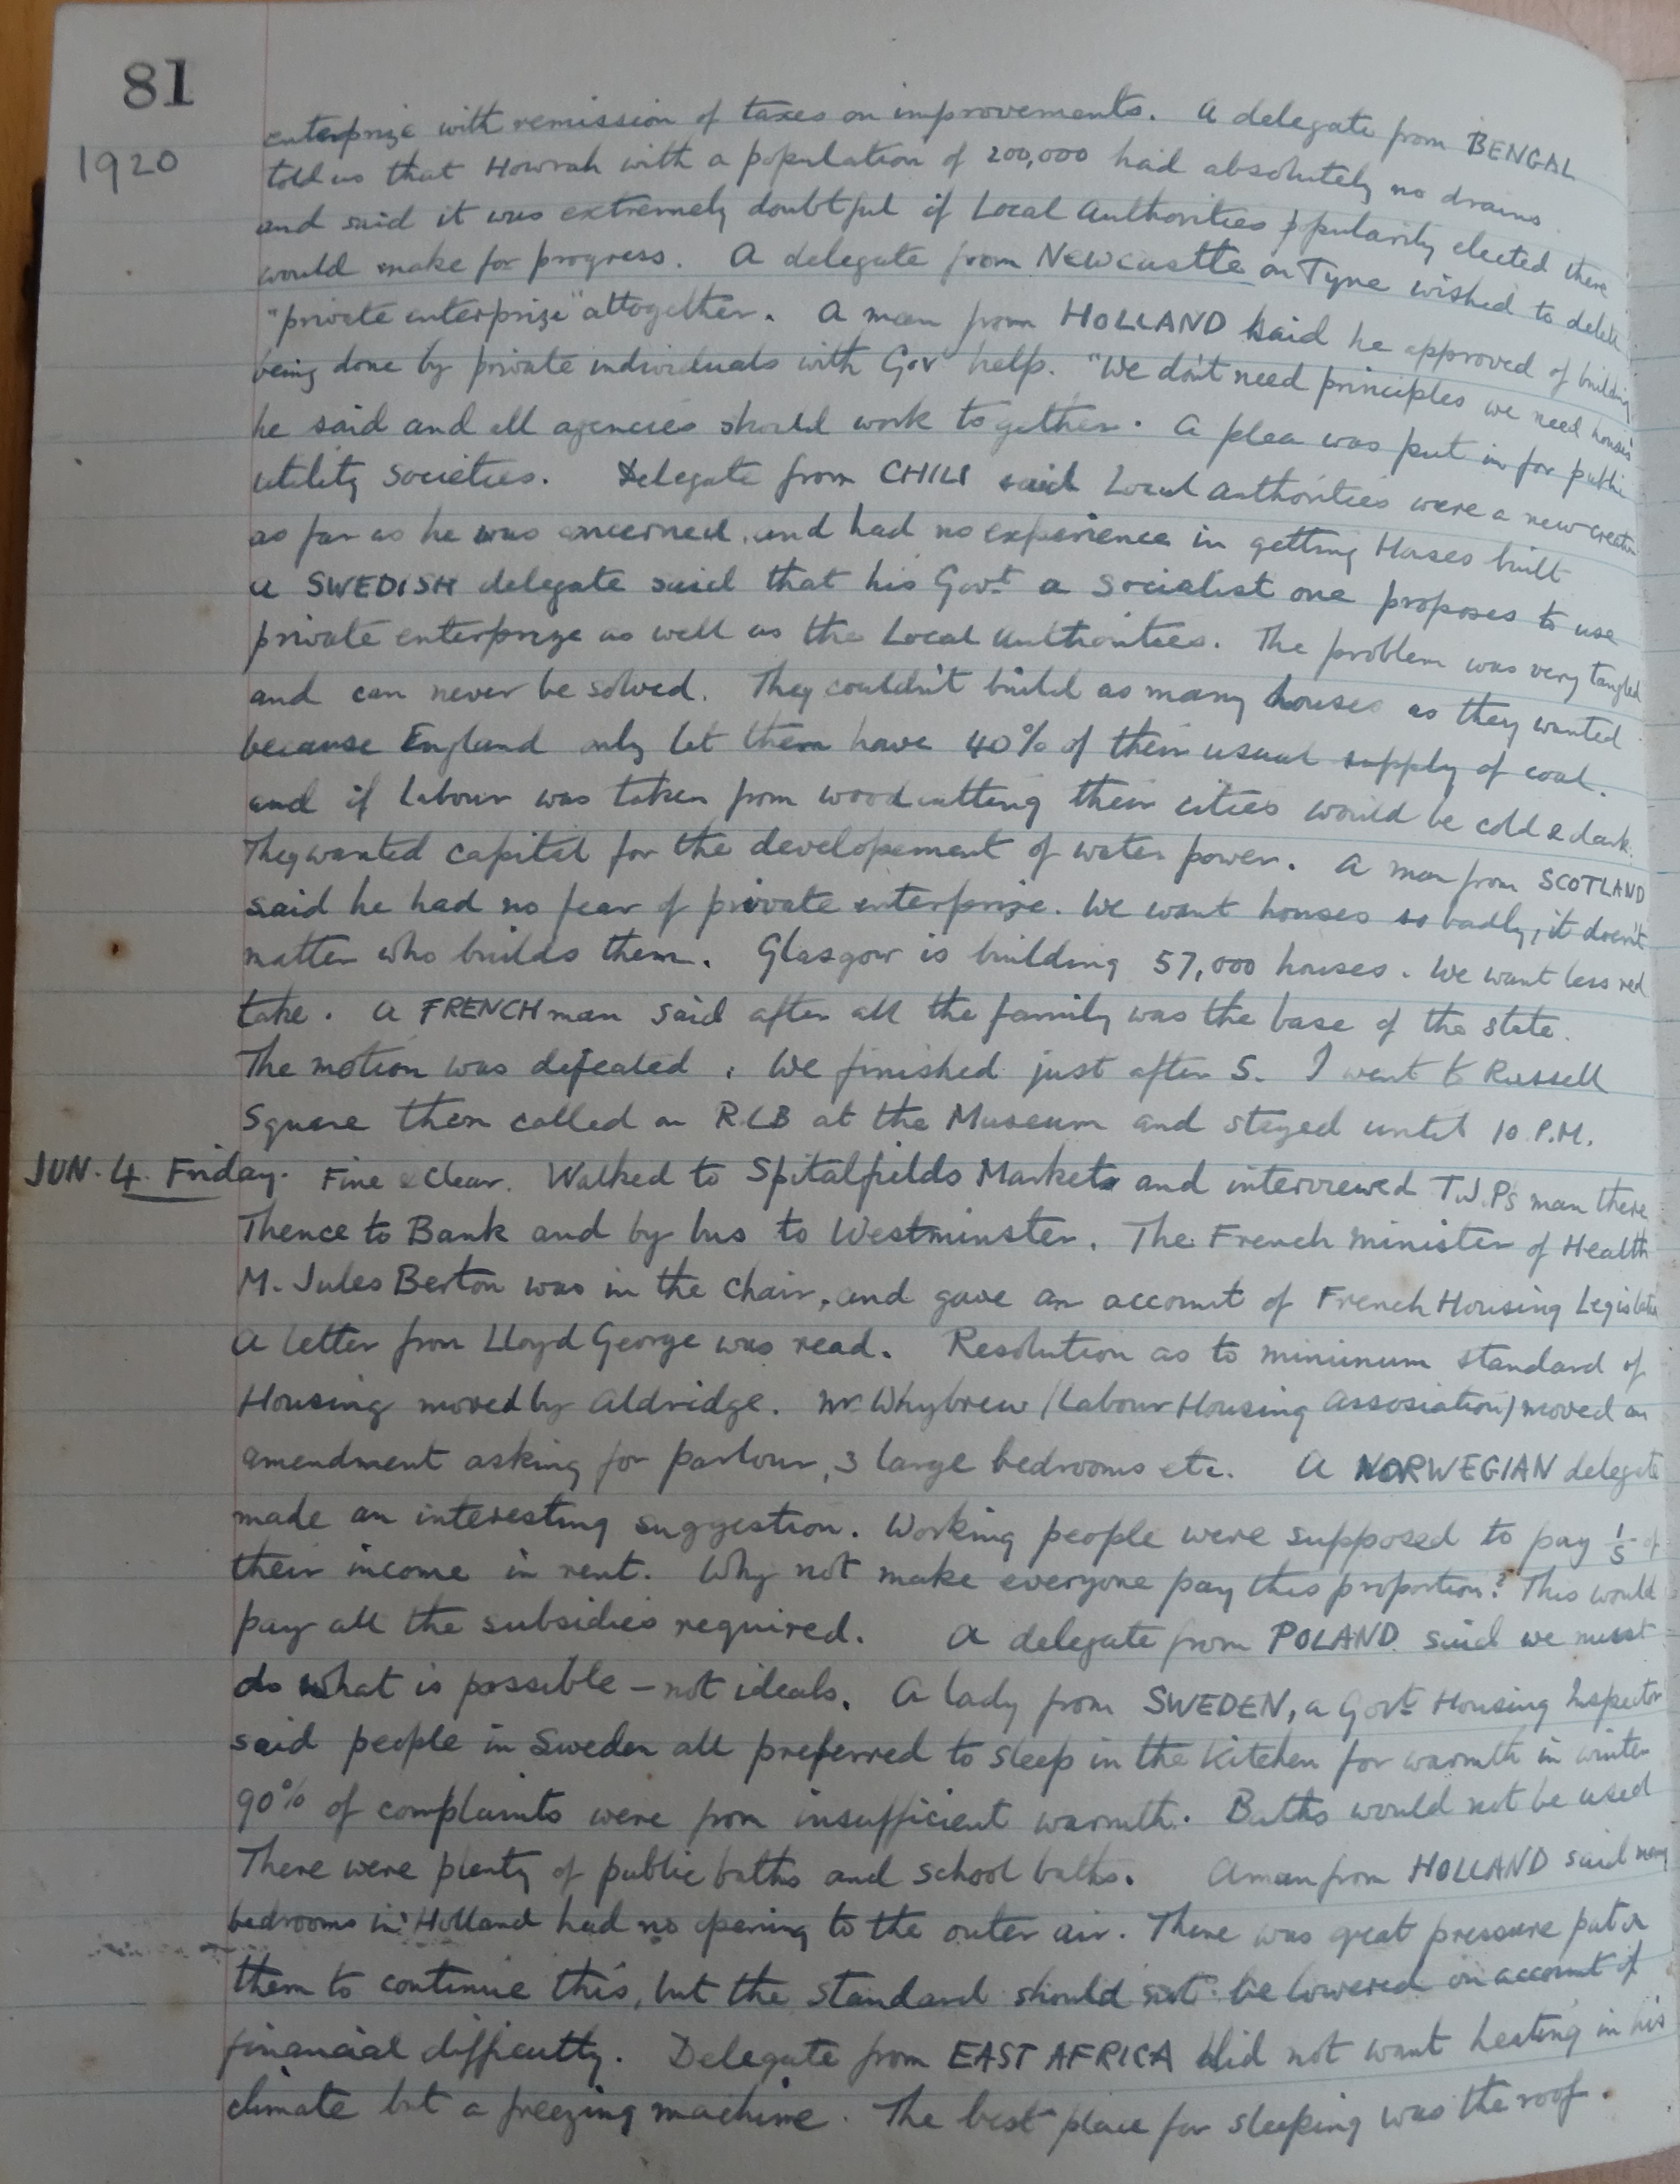 81
1920
enterprize with remission of taxes on improvements. A delegate from BENGAL
told us that Howrah with a population of 200,000 had absolutely no drains
and said it was extremely doubtful if Local Authorities popularily elected there
would make for progress. A delegate from Newcastle on Tyne wished to delete
"private enterprize" altogether. A man from HOLLAND said he approved of building
being done by private individuals with Govt help. "We don't need principles we need houses"
he said and all agencies should work together. A plea was put in for public
utility societies. Delegate from CHILI said Local Authorities were a new creation
as far as he was concerned, and had no experience in getting Houses built
A SWEDISH delegate said that his Govt a Socialist one proposes to use
private enterprize as well as the Local Authorities. The problem was very tangled
and can never be solved. They couldn't build as many houses as they wanted
because England only let them have 40% of their usual supply of coal.
and if Labour was taken from woodcutting their cities would be cold & dark.
They wanted capital for the developement of water power. A man from SCOTLAND
said he had no fear of private enterprize. We want houses so badly, it doesn't
matter who builds them. Glasgow is building 57,000 houses. We want less red
take. A FRENCH man said after all the family was the base of the state.
The motion was defeated. We finished just after 5. I went to Russell
Square then called on R.L.B at the Museum and stayed until 10 P.M.
JUN. 4. Friday. Fine & Clear. Walked to Spitalfields Market and interviewed T.J.P's man there
Thence to Bank and by bus to Westminster. The French Minister of Health
M. Jules Berton was in the chair, and gave an account of French Housing Legislation
A letter from Lloyd George was read. Resolution as to minimum standard of
Housing moved by Aldridge. Mr Whybrew (Labour Housing Assosiation) moved an
amendment asking for parlour, 3 large bedrooms etc. A NORWEGIAN delegate
made an interesting suggestion. Working people were supposed to pay 1/5 of
their income in rent. Why not make everyone pay this proportion? This would
pay all the subsidies required. A delegate from POLAND said we must
do what is possible – not ideals. A lady from SWEDEN, a Govt Housing Inspector
said people in Sweden all preferred to sleep in the kitchen for warmth in winter
90% of complaints were from insufficient warmth. Baths would not be used
There were plenty of public baths and school baths. A man from HOLLAND said many
bedrooms in Holland had no opening to the outer air. There was great pressure put on
them to continue this, but the standard should not be lowered on account of
financial difficulty. Delegate from EAST AFRICA did not want heating in his
climate but a freezing machine. The best place for sleeping was the roof.